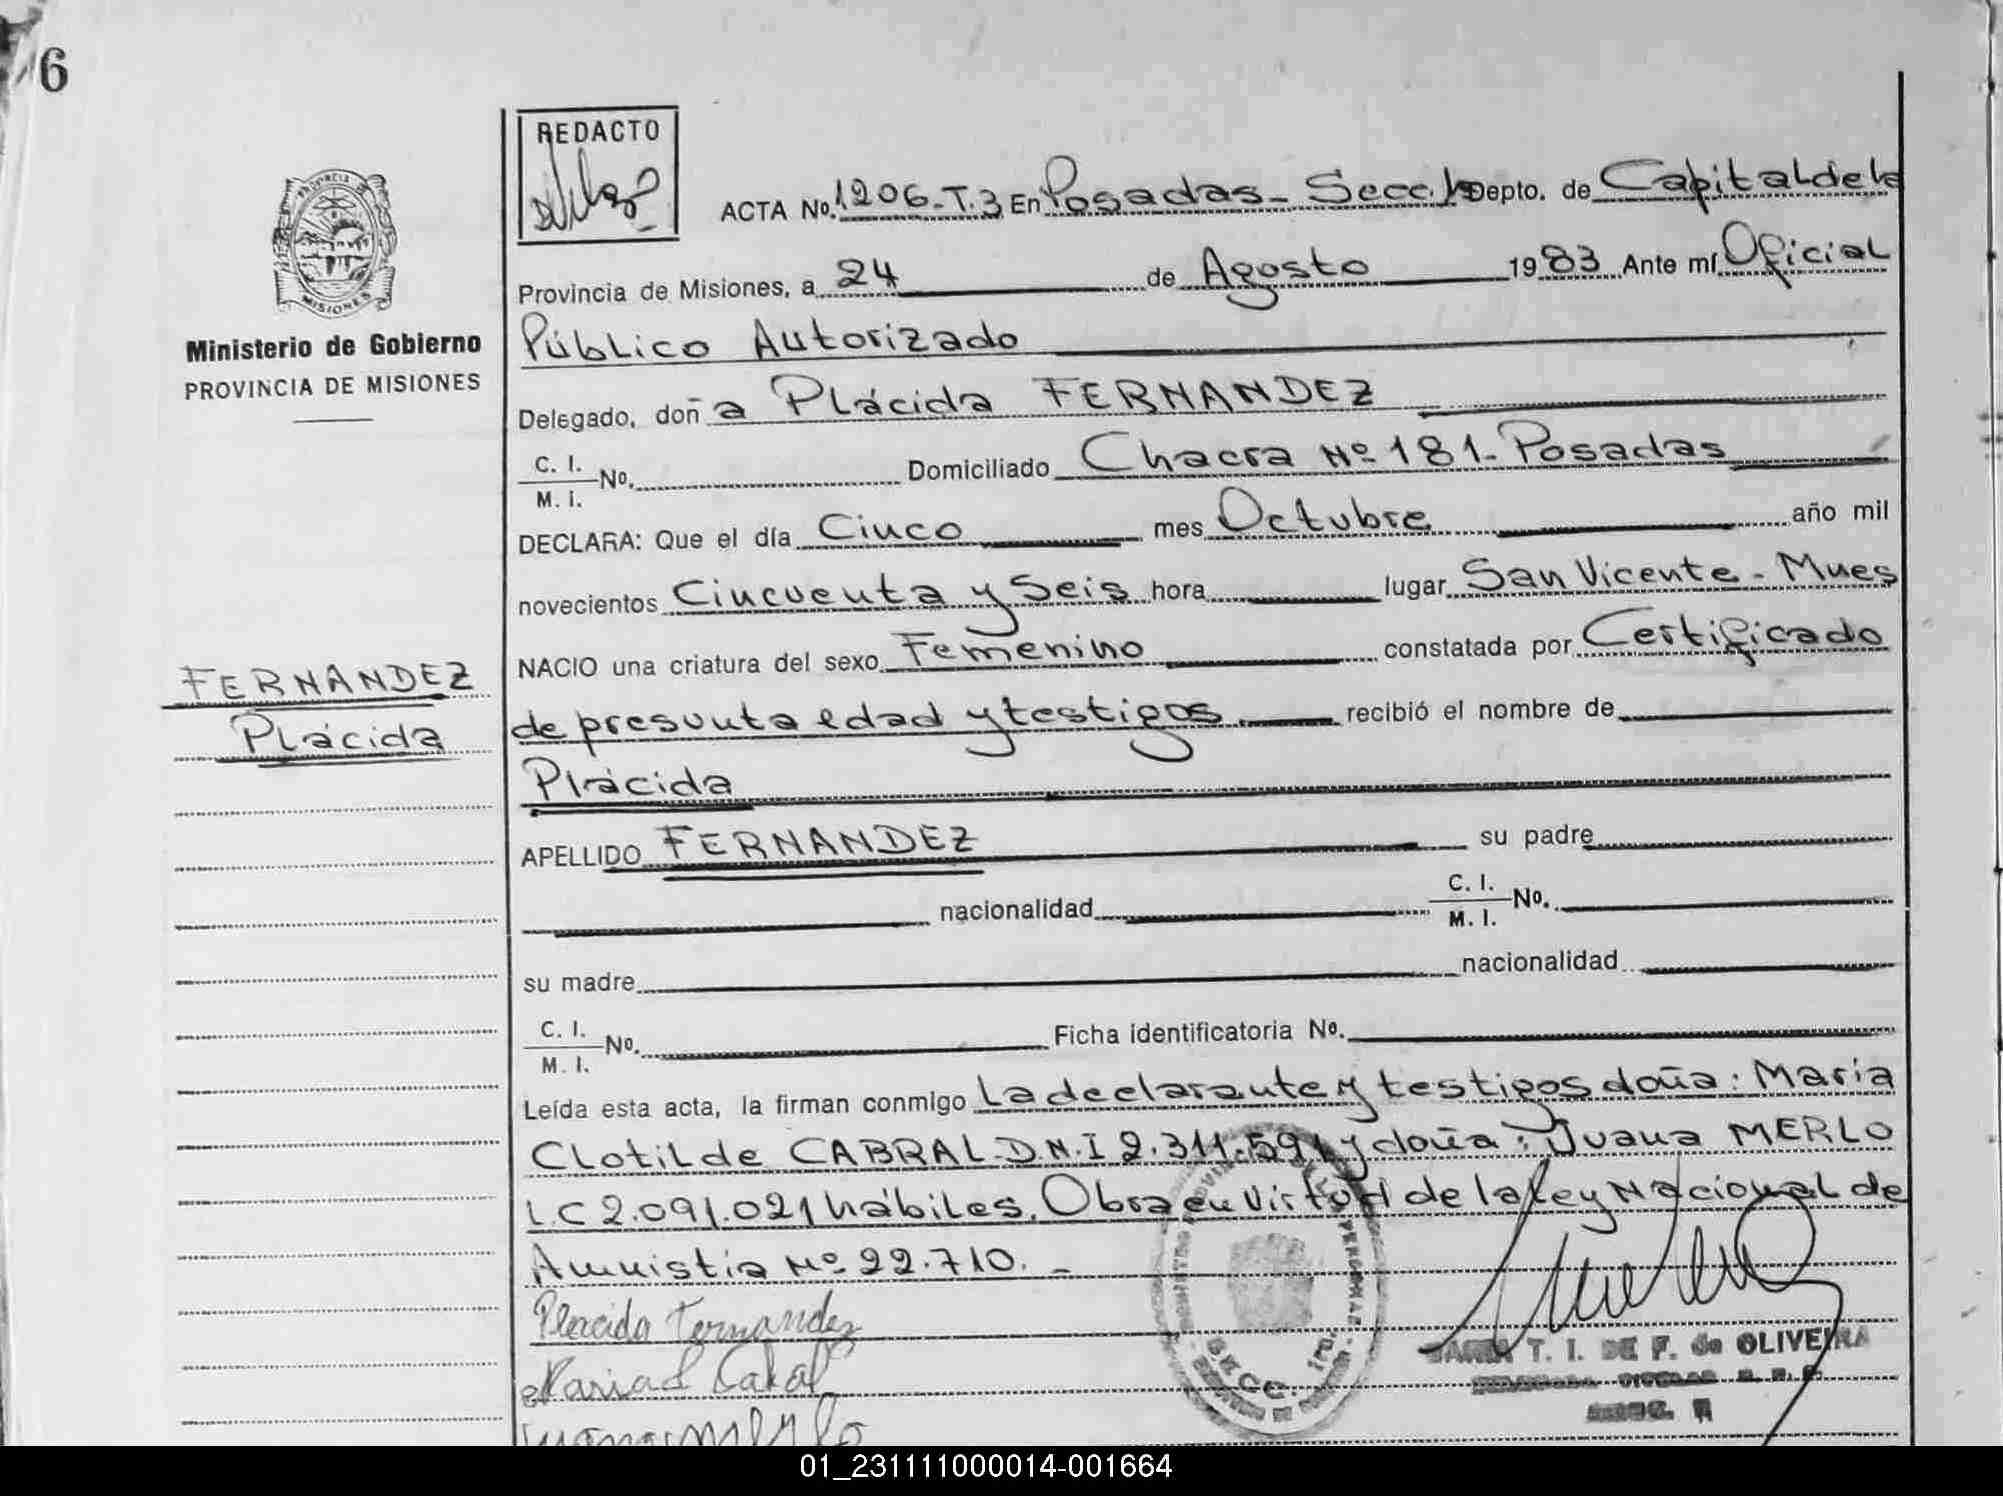 6
REDACTO
PROVINCIA DE
MISIONES
Ministerio de Gobierno
PROVINCIA DE MISIONES
FERNANDEZ
Plácida
ACTA No. 1206-T.3 En Posadas- Secc. 1a Depto. de Capital de la
Provincia de Misiones, a 24 de Agosto 1983 Ante mí Oficial
Público Autorizado
Delegado, doña Plácida FERNANDEZ
C. I. M. I. No. Domiciliado Chacra Nº 181- Posadas
DECLARA: Que el día Cinco mes Octubre año mil
novecientos Cincuenta y Seis hora lugar San Vicente - Mnes
NACIO una criatura del sexo Femenino constatada por Certificado
de presunta edad y testigos recibió el nombre de
Plácida
APELLIDO FERNANDEZ su padre
nacionalidad C. I. M. I. No.
su madre nacionalidad
C. I. M. I. No. Ficha identificatoria No.
Leída esta acta, la firman conmigo La declarante y testigos doña: María
Clotilde CABRAL-D.N.I 2.311.591 y doña: Juana MERLO
L.C 2.091.021 hábiles. Obra en Virtud de la Ley Nacional de
Amnistía Nº 22.710. -
Placida Fernandez
Maria C Cabral
Juana Merlo
SECC. 1ra.
MARIA T. I. DE F. de OLIVEIRA
01_231111000014-001664